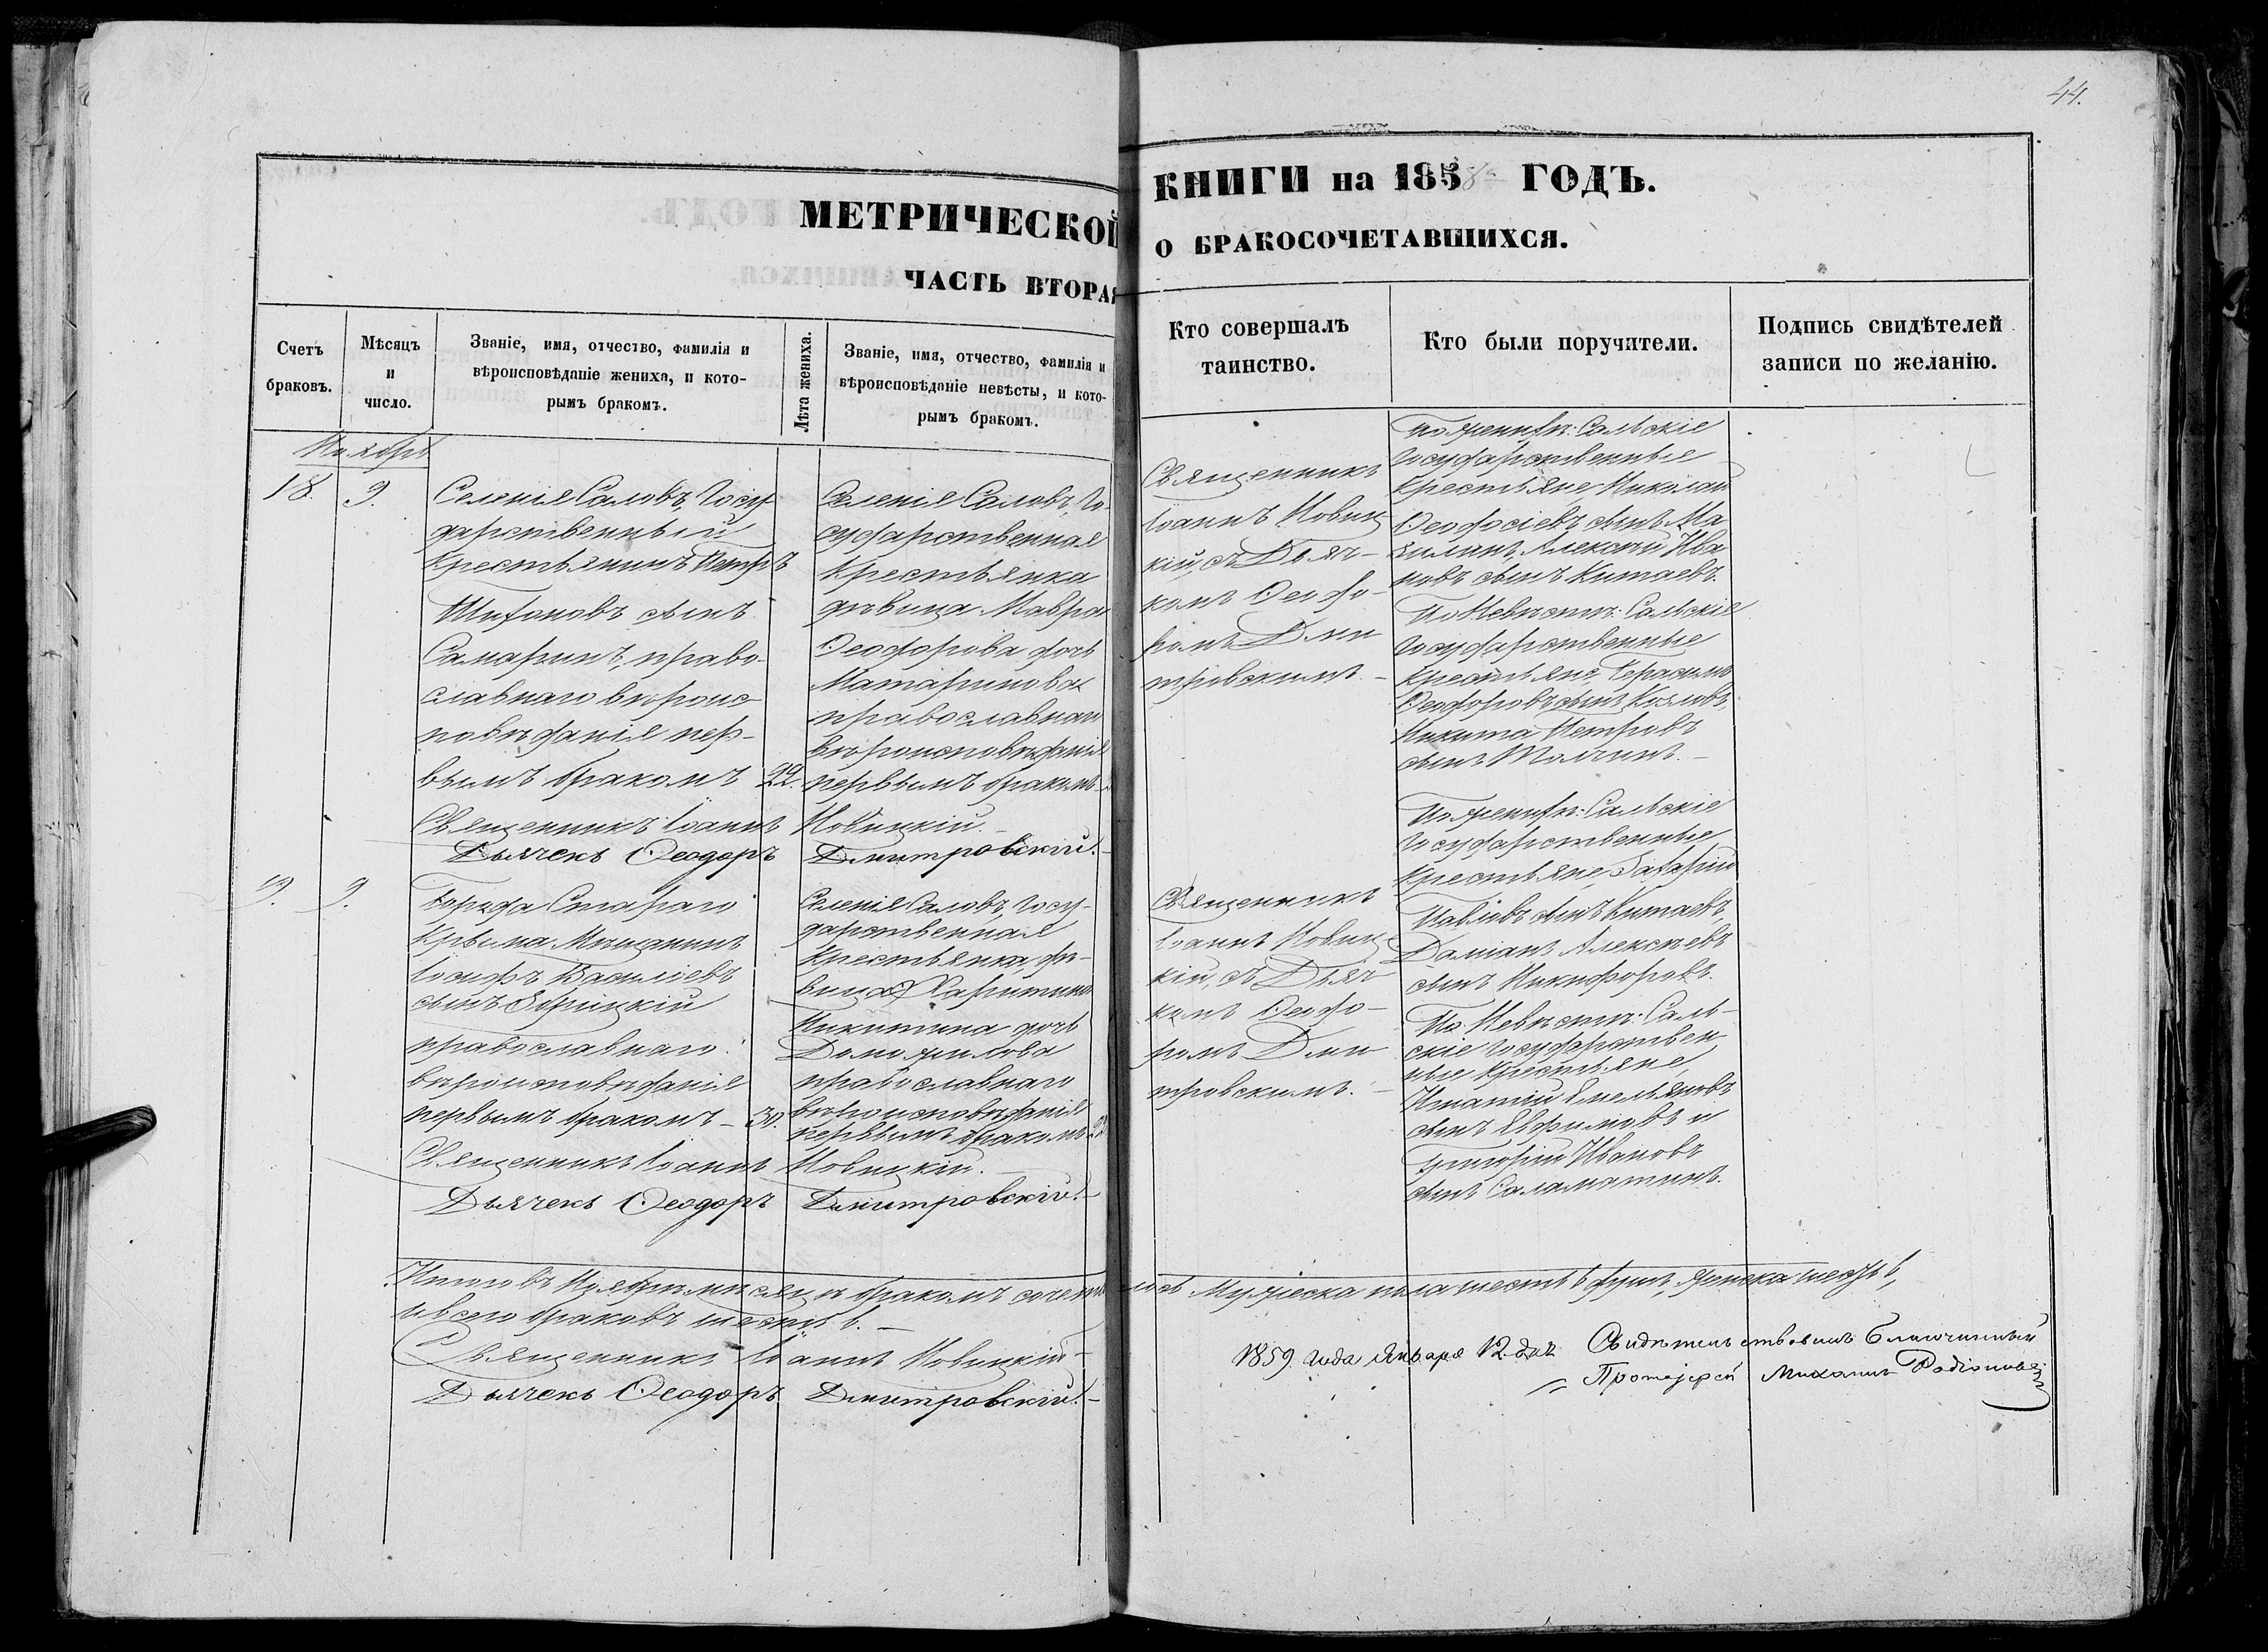 44.
МЕТРИЧЕСКОЙ КНИГИ на 1858 ГОДЪ.
ЧАСТЬ ВТОРАЯ О БРАКОСОЧЕТАВШИХСЯ.
Счетъ
браковъ.
Мѣсяцъ
и
число.
Званіе, имя, отчество, фамилія и
вѣроисповѣданіе жениха, и кото-
рымъ бракомъ.
Лѣта жениха.
Званіе, имя, отчество, фамилія и
вѣроисповѣданіе невѣсты, и кото-
рымъ бракомъ.
Кто совершалъ
таинство.
Кто были поручители.
Подпись свидѣтелей
записи по желанію.
Ноябрь
18.
9.
Селенія Саловъ, Госу-
дарственный
Крестьянинъ Петръ
сынъ
Самаринъ, право-
славнаго вѣроис-
повѣданія пер-
вымъ бракомъ
22.
Селенія Саловъ, Го-
сударственная
Крестьянка
дѣвица Мавра
Ѳеодорова дочь
православнаго
вѣроисповѣданія
первымъ бракомъ
Священникъ Іоаннъ Новицкій.
Дьячекъ Ѳеодоръ Дмитровскій.
Священникъ
Іоаннъ Новиц-
кій, съ Дьяч-
комъ Ѳеодо-
ромъ Дми-
тровскимъ.
По женихѣ: Сальскіе
Государственные
Крестьяне, Николай
Ѳеодосіевъ сынъ Ма-
Алексѣй Ива-
новъ сынъ Китаевъ.
По Невѣстѣ: Сальскіе
Государственные
Крестьяне, Герасимъ
Ѳеодоровъ сынъ Козловъ,
Никита Петровъ
сынъ
19.
9.
Города Стараго
Крыма Мѣщанинъ
Іосифъ Василіевъ
сынъ
православнаго
вѣроисповѣданія
первымъ бракомъ
30.
Селенія Саловъ, Госу-
дарственная
Крестьянка, дѣ-
вица Харитина
Никитина дочь
Доможилова
православнаго
вѣроисповѣданія
первымъ бракомъ
Священникъ Іоаннъ Новицкій.
Дьячекъ Ѳеодоръ Дмитровскій.
Священникъ
Іоаннъ Новиц-
кій, съ Дьяч-
комъ Ѳеодо-
ромъ Дми-
тровскимъ.
По женихѣ: Сальскіе
Государственные
Крестьяне, Захарій
Павловъ сынъ Китаевъ,
Даміанъ Алексѣевъ
сынъ Никифоровъ.
По Невѣстѣ: Саль-
скіе Государствен-
ные Крестьяне,
Игнатій Емельяновъ
сынъ Ефимовъ и
Григорій Ивановъ
сынъ Саламатинъ.
Итого въ Ноябрѣ мѣсяцѣ бракомъ сочеталось Мужеска пола шесть душъ, женска шесть,
и всего браковъ шесть.
Священникъ Іоаннъ Новицкій
Дьячекъ Ѳеодоръ Дмитровскій.
1859 года Января 12 дня Свидѣтельствовалъ Благочинный
Протоіерей Михаилъ Родіоновъ